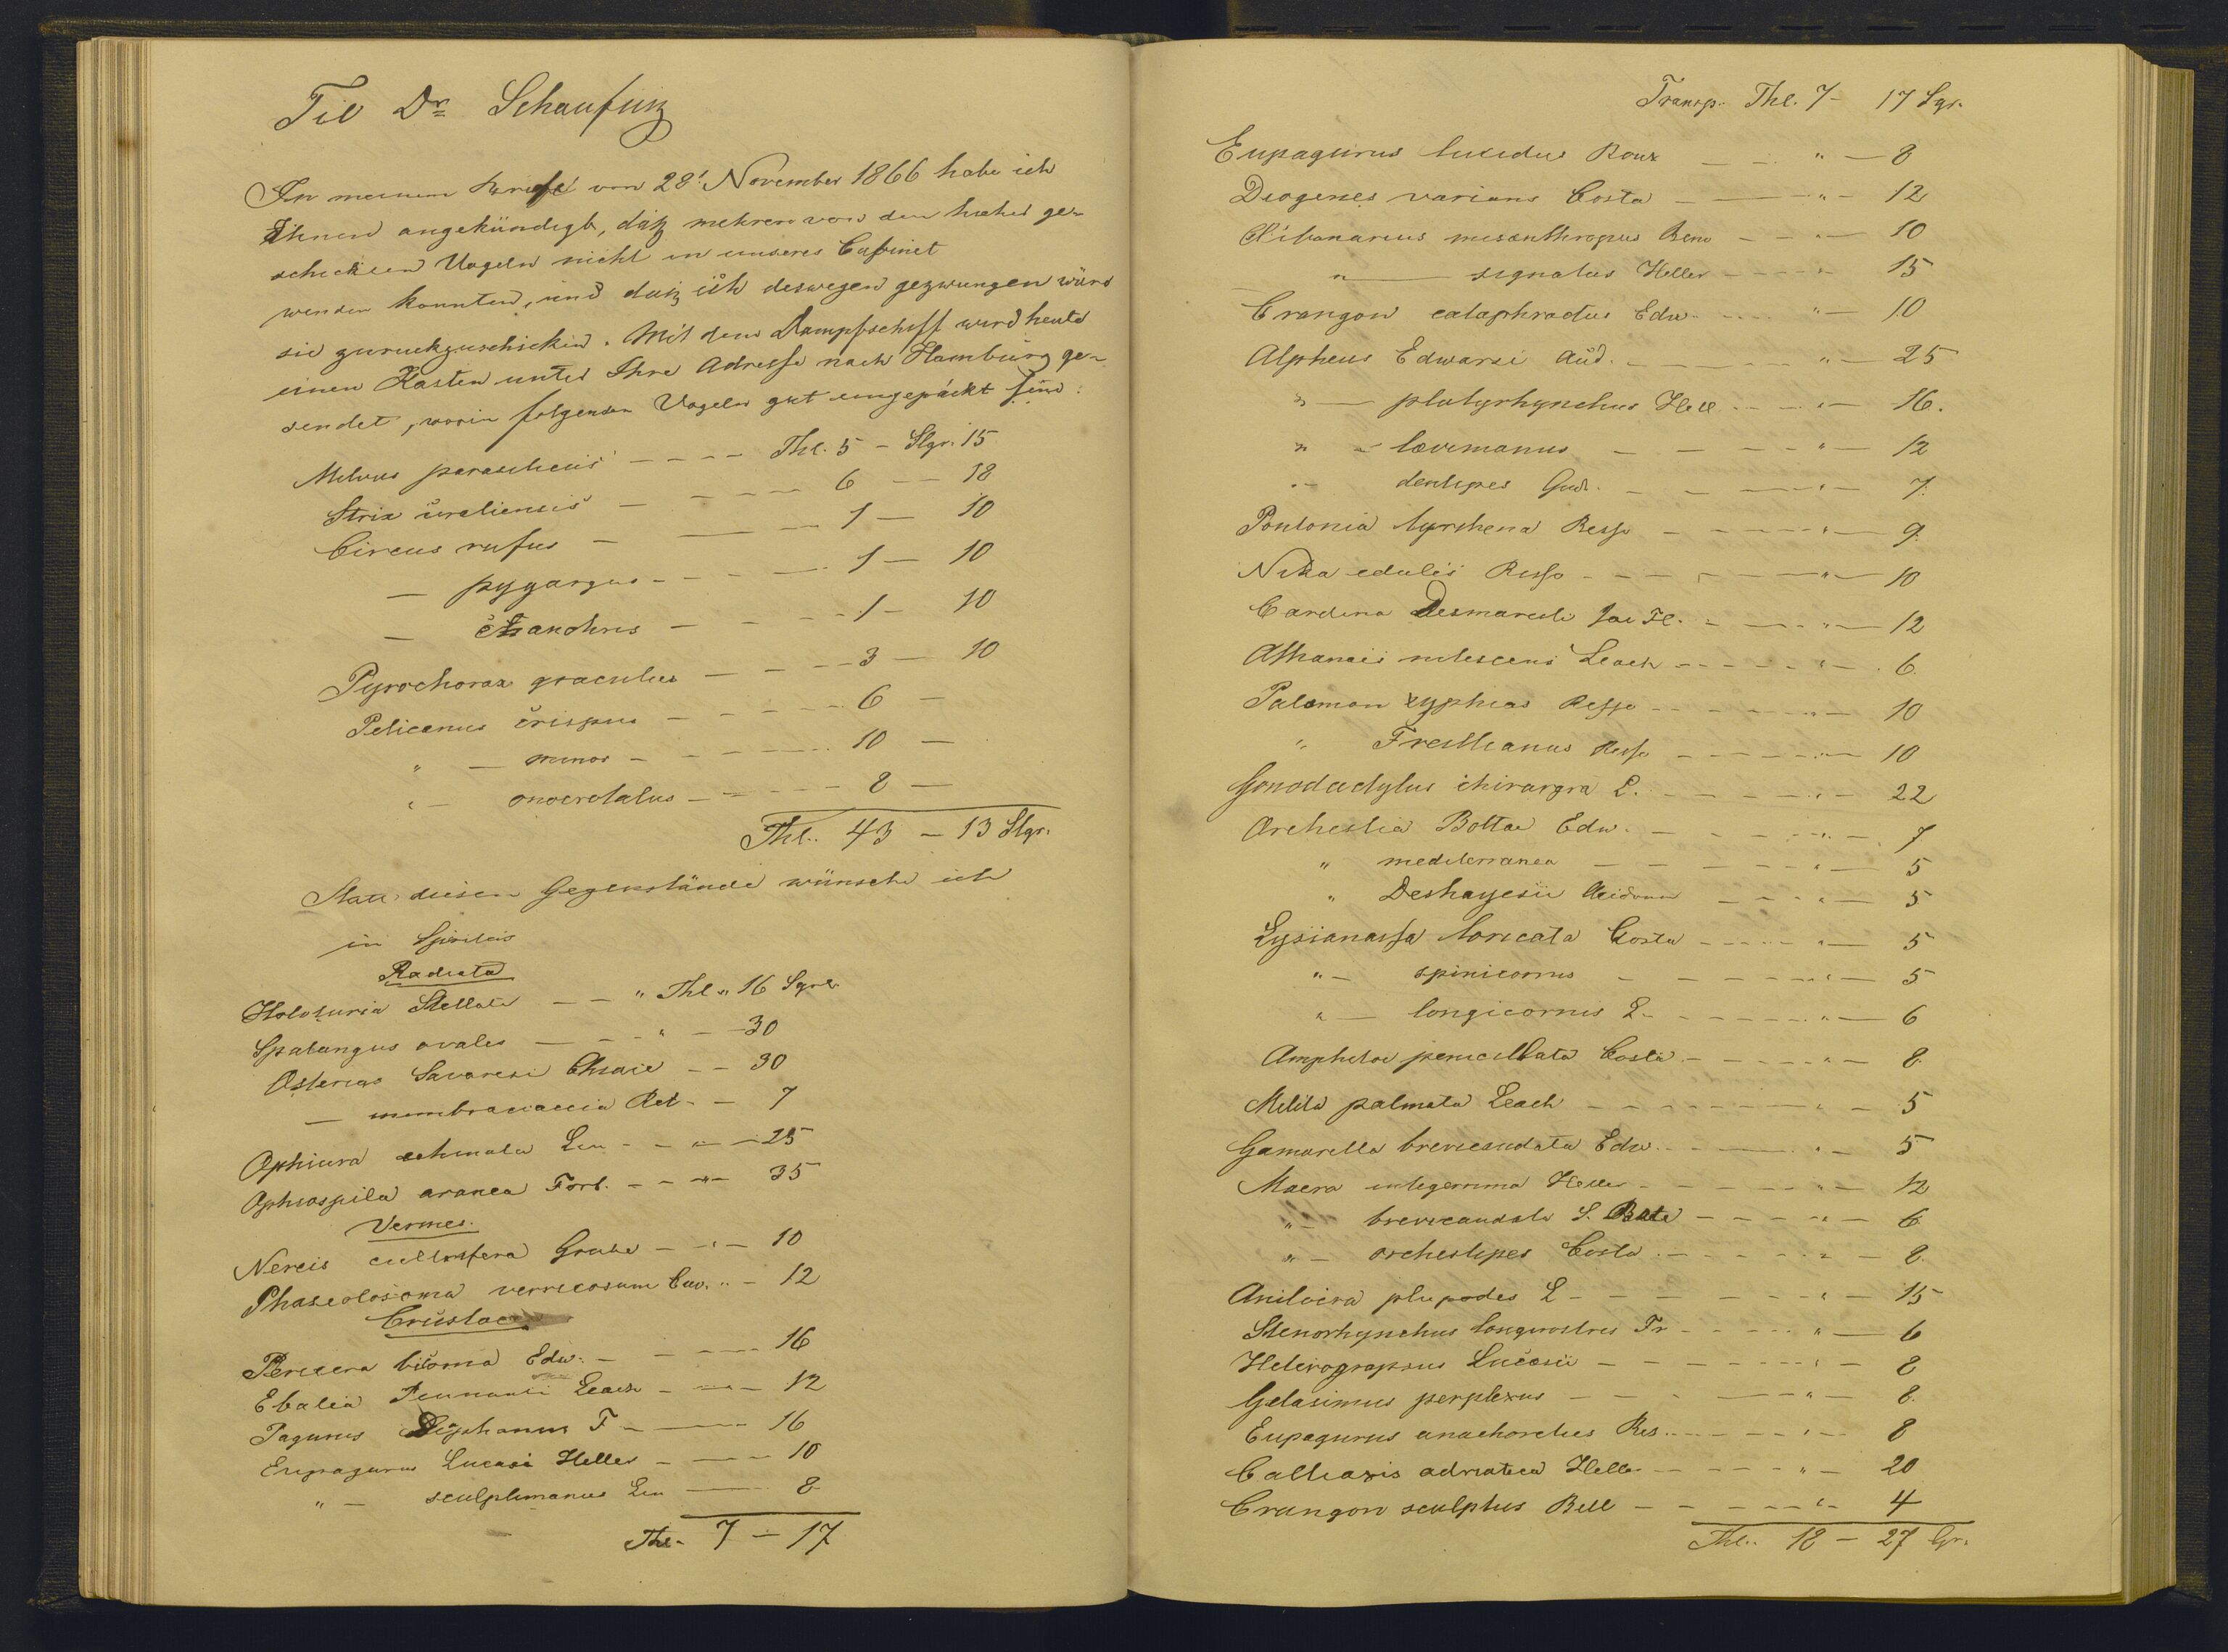 Til Dr. Schaufusz
In meinem Briefe von 28! November 1866 habe ich
Ihnen angekündigt, dasz mehrere von den hieher ge-
schickten Vogeln nicht in unseres Cabinet
werden konnten, und dasz ich deswegen gezwungen wäre
sie zuruckzuschicken. Mit dem Dampfschiff wird heute
einen Kasten unter Ihre Adresse nach Hamburg ge-
sendet, worin folgenden Vogeln gut eingepäckt sind:
Milvus parasiticus - - - - Thl. 5 - Slgr. 15
Strix uraliensis - - - - 6 - 18
Circus rufus - - - 1 - 10
— pygargus - - - - 1 - 10
— - - - - 1 - 10
Pyrochorax graculus - - - 3 - 10
Pelicanus crispus - - - - 6 -
" — minor - - - - 10 -
" — onocrotalus - - - - 8 -
Thl. 43 - 13 Slgr.
Statt diesen Gegenstände wünsche ich
in Spiritus
Radiata
Holoturia Stellata - - " Thl " 16 Sgr
Spatangus ovales - - " - 30
Asterias Savaresi Chiaie - - 30
— membranacea Ret. - 7
Ophiura echinata Lin - - " - 25
Ophiospila aranea Forb. - - " - 35
Vermes.
Nereis cultrifera Grube - " - 10
Phascolosoma verrucosum Cuv. " - 12
Crustacea
Pericera bicorna Edw. - - - 16
Ebalia Pennantii Leach - - - 12
Pagurus F - - 16
Eupagurus Lucasi Heller - - - 10
" — sculptimanus Luc - 8
Thl. 7 - 17
Transp. Thl. 7 - 17 Sgr.
Eupagurus lucidus Roux - - " - 8
Diogenes varians Costa - - " - 12
Clibanarius misanthropus - - " - 10
" — signatus Heller - - - - 15
Crangon cataphractus Edw. - - " - 10
Alpheus Edwarsi Aud. - - - " - 25
" — platyrhynchus Hell - - " - 16.
" — lævimanus - - - - " - 12
" dentipes Guér. - - - " - 7.
Pontonia tyrrhena Risso - - - " - 9.
Nika edulis Risso - - - - " - 10
Caridina Desmaresti Joe Fl. - - - " - 12
Athanas nitescens Leach - - - - " - 6.
Palamon xyphias Risso - - - " - 10
" Treillianus Risso - - - " - 10
Gonodactylus chiragra L. - - - " - 22
Orchestia Bottae Edw. - - - " - 7
" mediterranea - - - - " - 5
" Deshayesii Audouin - - - " - 5
Lysianassa loricata Costa - - - " - 5
" — spinicornis - - - - " - 5
" — longicornis L. - - - " - 6
Amphitoe penicillata Costa - - - " - 8.
Melita palmata Leach - - - " - 5
Gamarella brevicaudata Edw. - - " - 5
Maera integerrima Heller - - - " - 12
" — brevicaudata S. Bate - - - " - 6
" — orchestipes Costa - - - " - 8.
Anilocra plupodes L - - - - " - 15
Stenorhynchus longirostris Fr - - - " - 6
Heterograpsus Lucasii - - - - " - 8
Gelasimus perplexus - - - - " - 8.
Eupagurus anachoretus Ris. - - - " - 8
Calliaxis adriatica Heller - - - " - 20
Crangon sculptus Bell - - - - " - 4
Thl. 18 - 27 Gr.